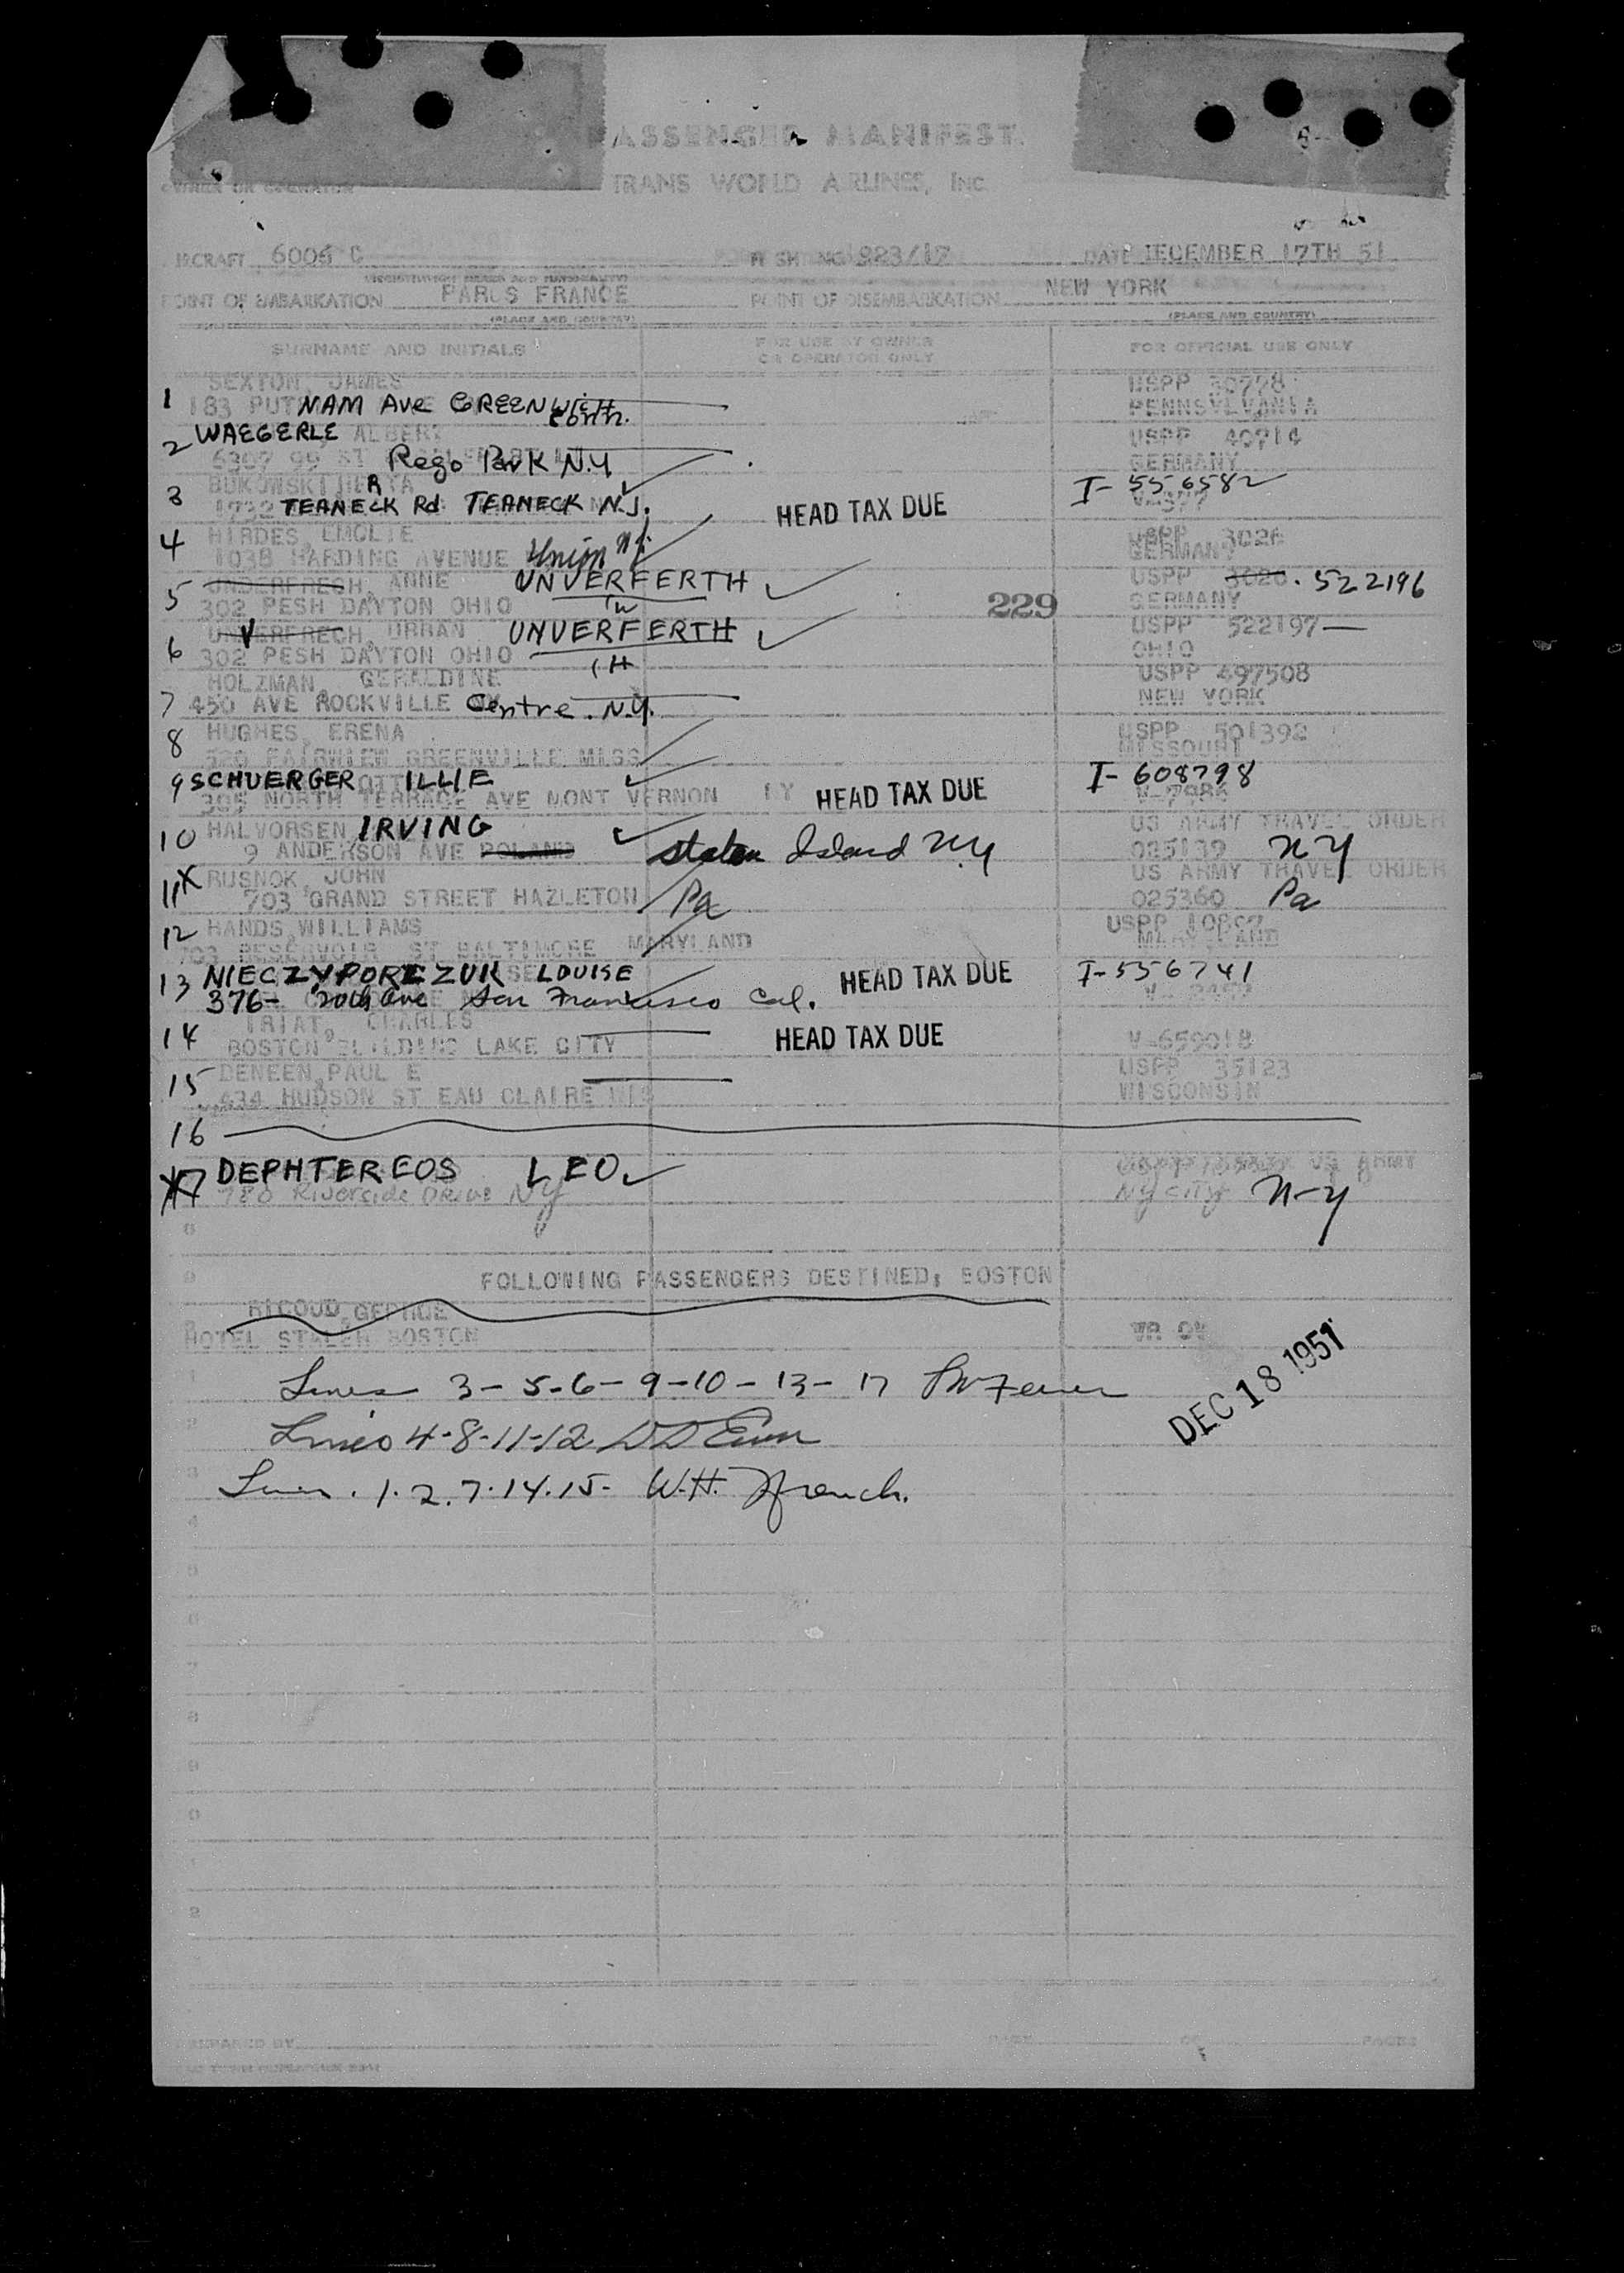 PASSENGER MANIFEST
TRANS WORLD AIRLINES, INC.
OWNER OR OPERATOR
AIRCRAFT 6006 C FLIGHT NO 923/17 DATE DECEMBER 17TH 51
POINT OF EMBARKATION PARIS FRANCE POINT OF DISEMBARKATION NEW YORK
(PLACE AND COUNTRY) (PLACE AND COUNTRY)
SURNAME AND INITIALS FOR USE BY OWNER OR OPERATOR ONLY FOR OFFICIAL USE ONLY
SEXTON, JAMES USPP 30778
1 183 PUTNAM Ave GREENWICH Conn. PENNSYLVANIA
2 WAEGERLE ALBERT USPP 40714
6307 99 ST Rego Park N.Y GERMANY
3 BUKOWSKI I-556582
1732 TEANECK Rd TEANECK N.J. HEAD TAX DUE V-377
4 HIRDES, EMOLIE USPP 3026
1038 HARDING AVENUE Union N.J. GERMANY
5 UNDERFRECH, ANNE UNVERFERTH USPP 3026 . 522196
302 PESH DAYTON OHIO 229 GERMANY
6 UNVERFRECH, URBAN UNVERFERTH USPP 522197
302 PESH DAYTON OHIO OHIO
HOLZMAN, GERALDINE USPP 497508
7 450 AVE ROCKVILLE Centre. N.Y. NEW YORK
8 HUGHES, ERENA USPP 501392
520 FAIRVIEW GREENVILLE MISS MISSOURI
9 SCHUERGER OTTILLIE I-608798
305 NORTH TERRACE AVE MONT VERNON NY HEAD TAX DUE
10 HALVORSEN IRVING US ARMY TRAVEL ORDER
9 ANDERSON AVE POLAND staten Island N.Y 025139 N Y
11 X RUSNOK, JOHN US ARMY TRAVEL ORDER
703 GRAND STREET HAZLETON Pa 025360 Pa
12 HANDS, WILLIAMS USPP
703 RESERVOIR ST BALTIMORE MARYLAND MARYLAND
13 NIECZYPORCZUK LOUISE HEAD TAX DUE I-556741
376- 20th Ave San Francisco Cal.
14 TRIAT, CHARLES HEAD TAX DUE
BOSTON BUILDING LAKE CITY V-659018
15 DENEEN, PAUL E USPP 35123
434 HUDSON ST EAU CLAIRE WIS WISCONSIN
16
17 DEPHTEREOS LEO US ARMY
780 Riverside Drive NY NY City N-Y
FOLLOWING PASSENGERS DESTINED; BOSTON
RICOUD, GEORGE
HOTEL STALER BOSTON
DEC 18 1951
Lines 3-5-6-9-10-13-17
Lines 4-8-11-12
Lines. 1.2.7.14.15- W.H. French.
PREPARED BY PAGE OF PAGES